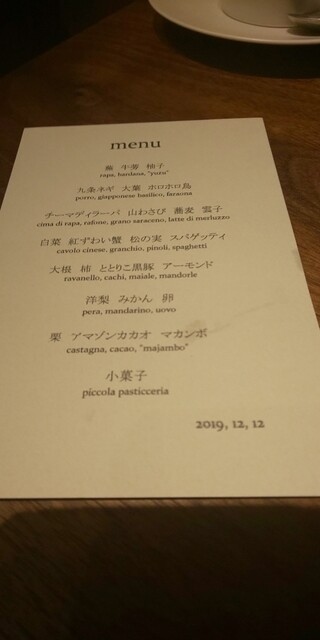 menu
蕪 牛蒡 柚子
rapa, bardana, "yuzu"
九条ネギ 大葉 ホロホロ鳥
porro, giapponese basilico, faraona
チーマディラーパ 山わさび 蕎麦 雲子
cima di rapa, rafone, grano saraceno, latte di merluzzo
白菜 紅ずわい蟹 松の実 スパゲッティ
cavolo cinese, granchio, pinoli, spaghetti
大根 柿 ととりこ豚 アーモンド
ravanello, cachi, maiale, mandorle
洋梨 みかん 卵
pera, mandarino, uovo
栗 アマゾンカカオ マカンボ
castagna, cacao, "majambo"
小菓子
piccola pasticceria
2019, 12, 12